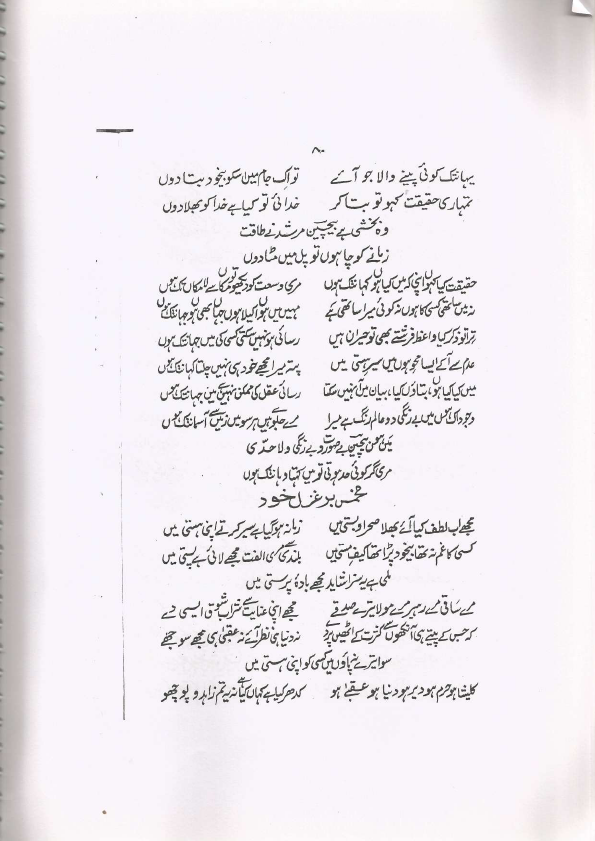 ۸۰
یہانتک کوئی پینے والا جو آئے تو اک جام میں اسکو بیخود بنا دوں
تمہاری حقیقت کہو تو بتا کر خدائی تو کیا ہے خدا کو بھلا دوں
وہ بخشی ہے بیچین مرشد نے طاقت
زمانے کو چاہوں تو پل میں مٹا دوں
حقیقت کیا کہوں اپنی کہ میں کیا ہوں کہانتک ہوں مری وسعت کو دیکھو تو مکاں سے لامکاں تک ہوں
نہ میں ساتھی کسی کا ہوں نہ کوئی میرا ساتھی ہے یہیں میں ہوں اکیلا ہوں جہاں بھی ہوں جہانتک ہوں
ترا تو ذکر کیا واعظ فرشتے بھی تو حیران ہیں رسائی ہو نہیں سکتی کسی کی میں جہانتک ہوں
عدم سے آ کے ایسا محو ہوں میں سیر ہستی میں پتہ میرا مجھے خود ہی نہیں چلتا کہانتک ہوں
میں کیا کیا ہوں، بتاؤں کیا، بیان میں آ نہیں سکتا رسائی عقل کی ممکن نہیں ہے میں جہانتک ہوں
وجود اک ہوں میں بے رنگی دو عالم رنگ ہے میرا مرے جلوے ہیں ہر سو میں زمیں سے آسمانتک ہوں
میں ہوں بیچین بے صورت و بے رنگی و لا حدّی
مری گر کوئی حد ہوتی تو میں کہتا وہانتک ہوں
مخمس بر غزل خود
مجھے اب لطف کیا آئے بھلا صحرا و بستی میں زمانہ ہو گیا ہے سیر کرتے اپنی ہستی میں
کسی کا غم نہ تھا بیخود پڑا تھا کیف و مستی میں بلندی سے کسی کی الفت مجھے لائی ہے پستی میں
ملی ہے یہ سزا شاید مجھے بادہ پرستی میں
مرے ساقی مرے رہبر مرے مولا ترے صدقے مجھے اپنی عنایت سے شراب شوق ایسی دے
کہ جس کے پیتے ہی آنکھوں سے کثرت کے اٹھیں پردے نہ دنیا ہی نظر آئے نہ عقبیٰ ہی مجھے سوجھے
سوا تیرے نہ پاؤں میں کسی کو اپنی ہستی میں
کلیسا ہو حرم ہو دیر ہو دنیا ہو عقبےٰ ہو کدھر کیا ہے کہاں کیا نہ یہ تم زاہدو پوچھو